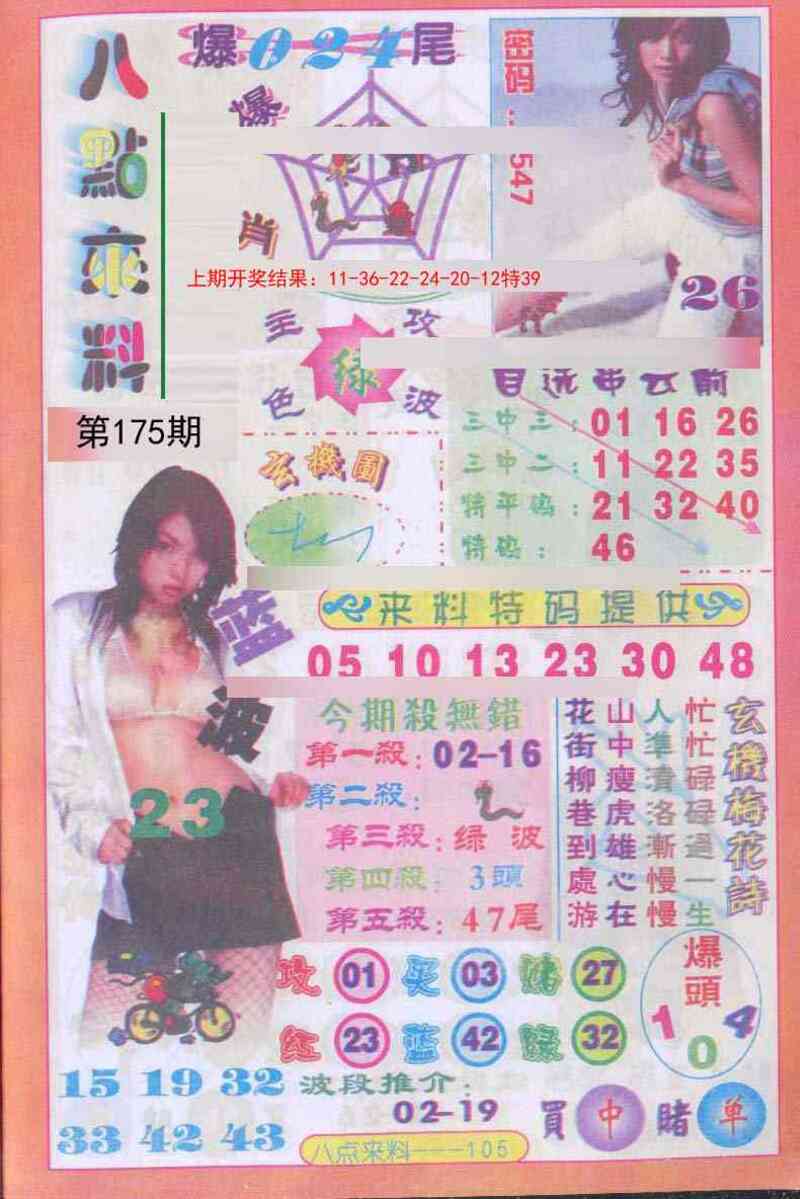 八點來料
爆024尾
密码
547
爆
肖
上期开奖结果：11-36-22-24-20-12特39
26
主攻
绿
色波
第175期
三中三：01 16 26
三中二：11 22 35
特平码：21 32 40
特码：46
玄機圖
来料特码提供
05 10 13 23 30 48
蓝
波
23
今期殺無錯
第一殺：02-16
第二殺：
第三殺：绿波
第四殺：3頭
第五殺：47尾
玄機梅花詩
忙忙碌碌過一生
人準濟洛漸慢慢
山中瘦虎雄心在
花街柳巷到處游
攻 01 买 03 赌 27
红 23 蓝 42 绿 32
爆頭
1 0 4
15 19 32
33 42 43
波段推介：
02-19
買 中 賭 单
八点来料---105